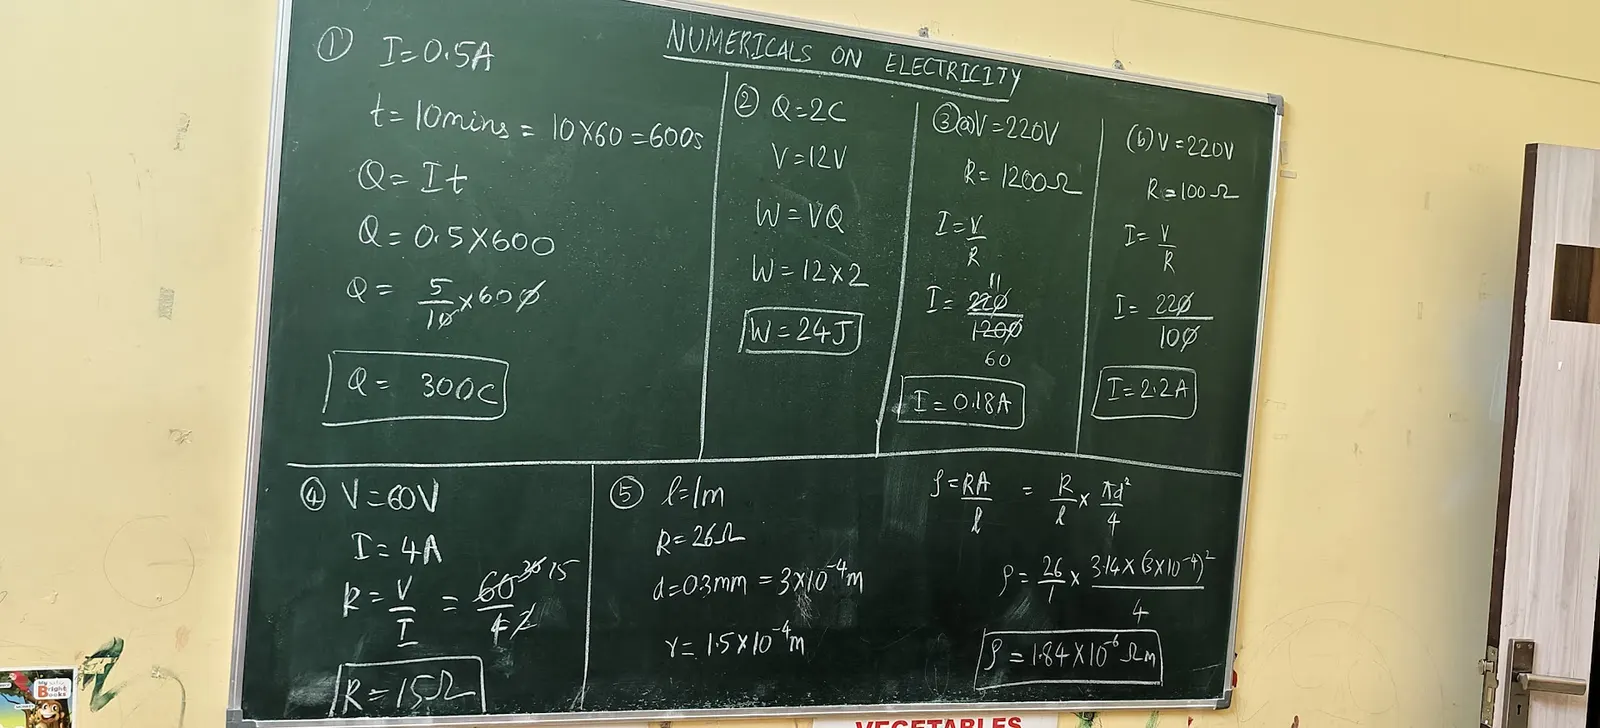 NUMERICALS ON ELECTRICITY
① I=0.5A
t=10mins = 10X60=600s
Q= It
Q= 0.5X600
Q= 5/10 X 600
Q= 300C
② Q=2C
V=12V
W=VQ
W=12X2
W=24J
③ (a) V=220V
R= 1200Ω
I= V/R
11
I= 220/1200
60
I=0.18A
(b) V=220V
R=100Ω
I= V/R
I= 220/100
I=2.2A
④ V=60V
I=4A
R= V/I = 60/4 30 15 2
R=15Ω
⑤ l=1m
R=26Ω
d=0.3mm = 3X10⁻⁴m
r= 1.5X10⁻⁴m
ρ= RA/l = R/l X πd²/4
ρ= 26/1 X 3.14X(3X10⁻⁴)²/4
ρ=1.84X10⁻⁶Ωm
My
Bright
Books
VEGETABLES